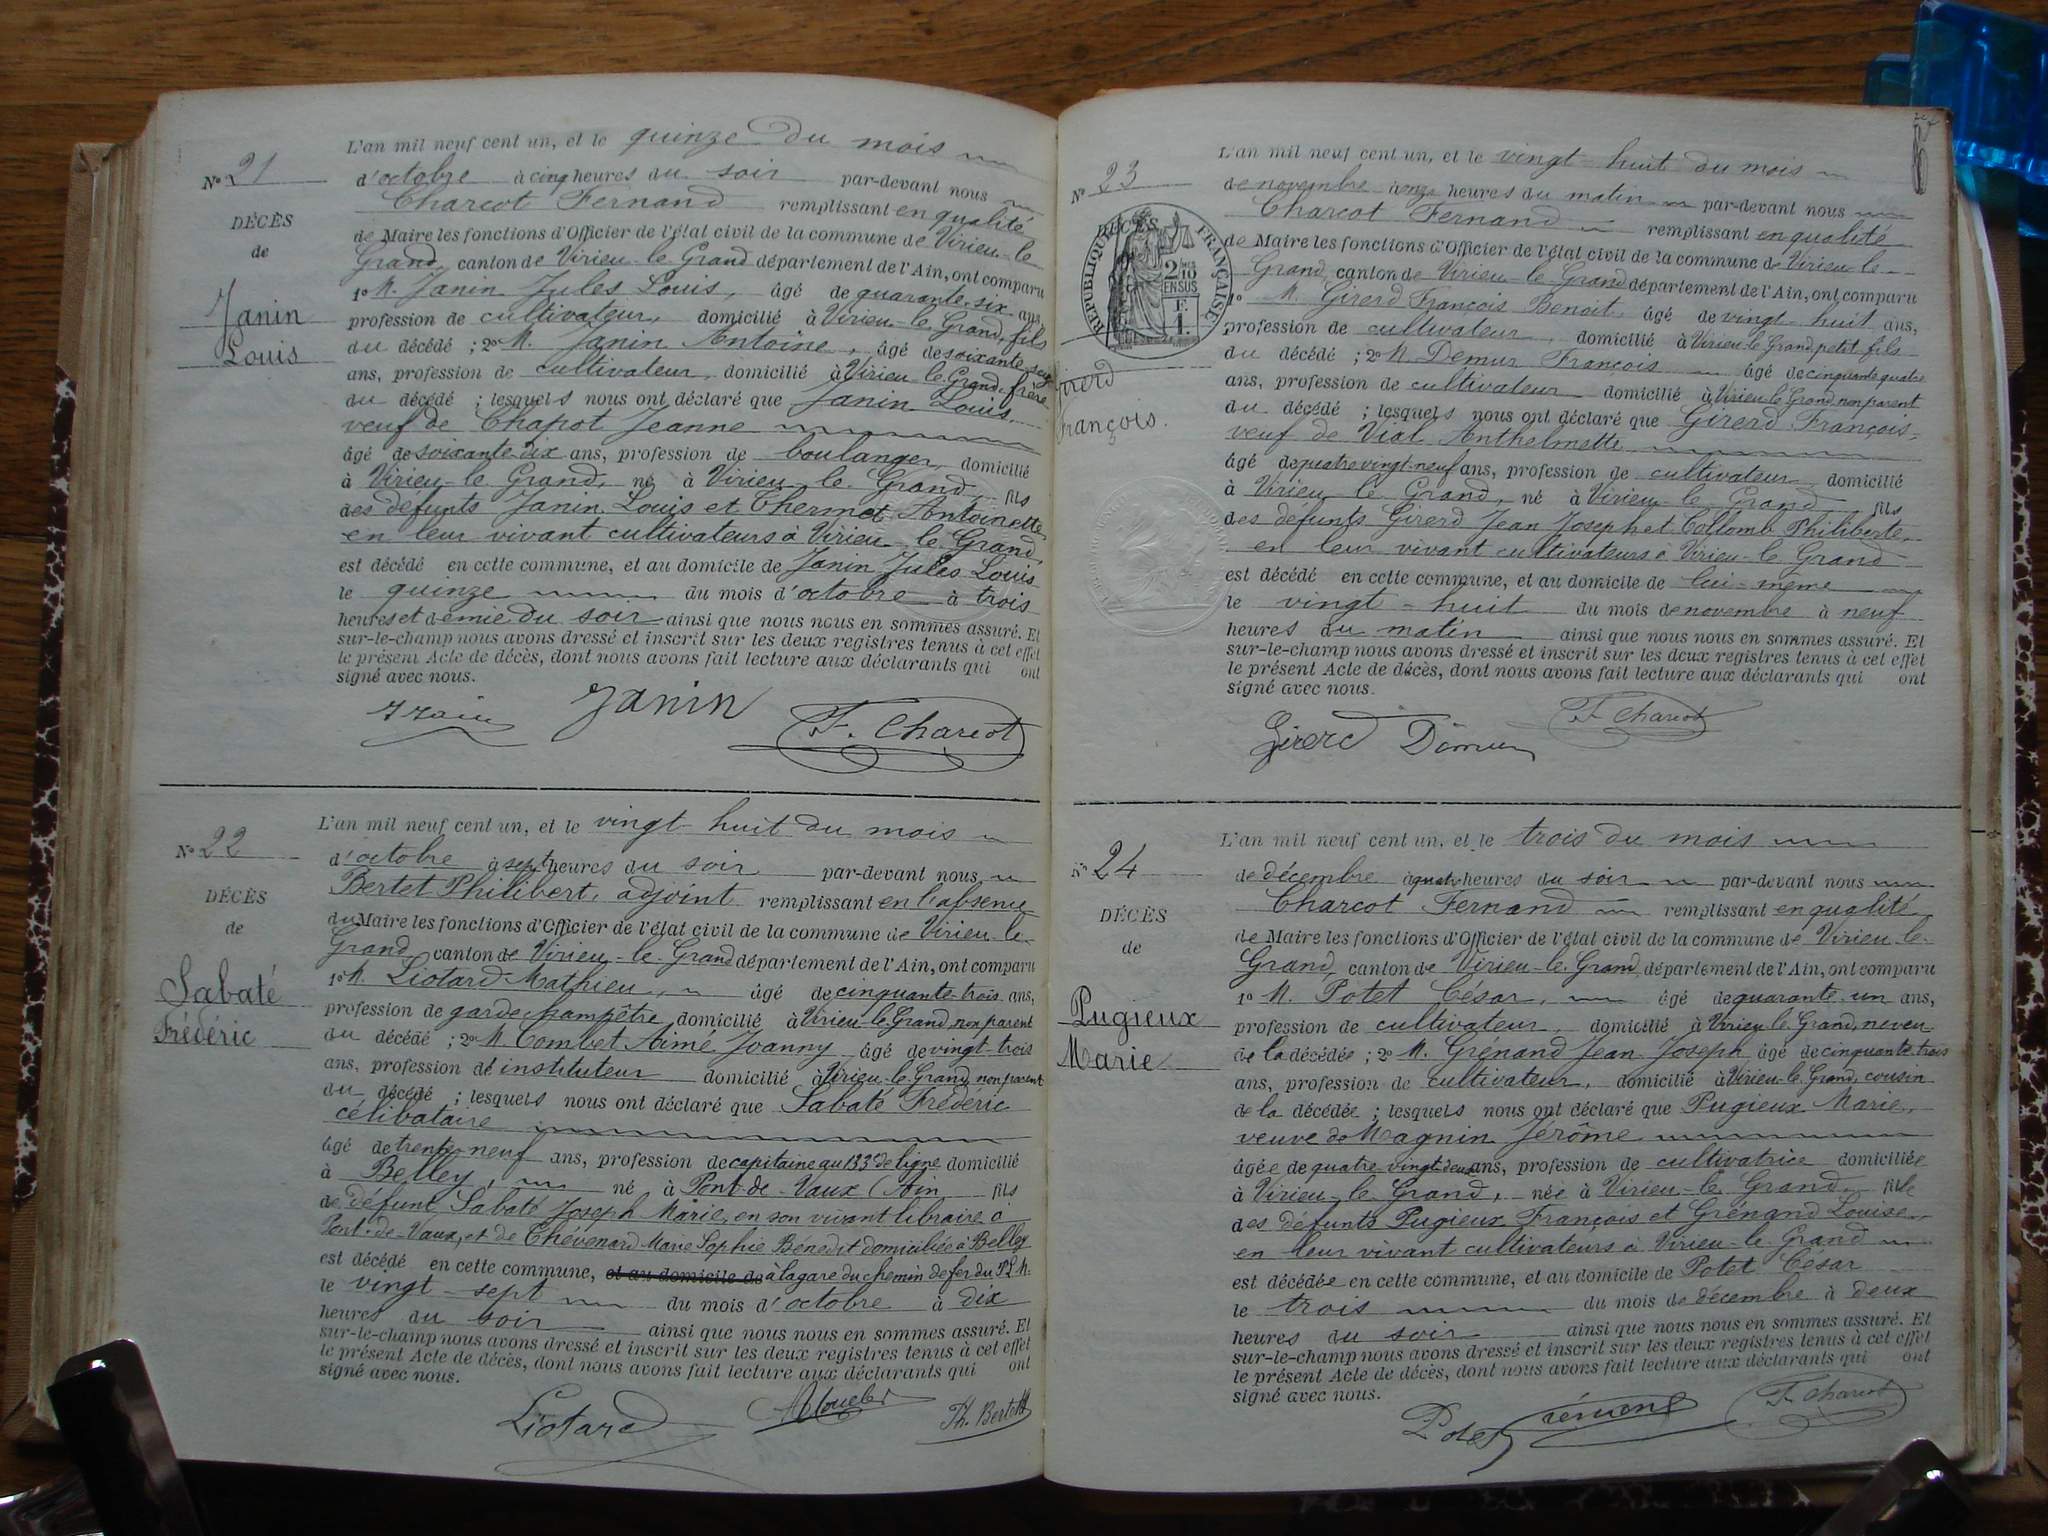 L'an mil neuf cent un, et le quinze du mois
N° 21
d'octobre à cinq heures du soir par-devant nous
Charcot Fernand remplissant en qualité
DÉCÈS
de Maire les fonctions d'Officier de l'état civil de la commune de Virieu-le
de
Grand, canton de Virieu-le-Grand département de l'Ain, ont comparu
Janin
1° M. Janin Jules Louis, âgé de quarante-six ans,
profession de cultivateur, domicilié à Virieu-le-Grand, fils
Louis
du décédé ; 2° M. Janin Antoine, âgé de soixante
ans, profession de cultivateur, domicilié à Virieu-le-Grand, frère
du décédé ; lesquels nous ont déclaré que Janin Louis
veuf de Chapot Jeanne
âgé de soixante dix ans, profession de boulanger, domicilié
à Virieu-le-Grand, né à Virieu-le-Grand, fils
des défunts Janin Louis et Thermet Antoinette
en leur vivant cultivateurs à Virieu-le-Grand
est décédé en cette commune, et au domicile de Janin Jules Louis
le quinze du mois d'octobre à trois
heures et demie du soir ainsi que nous nous en sommes assuré. Et
sur-le-champ nous avons dressé et inscrit sur les deux registres tenus à cet effet
le présent Acte de décès, dont nous avons fait lecture aux déclarants qui ont
signé avec nous.
Janin F. Charcot
L'an mil neuf cent un, et le vingt-huit du mois
N° 22
d'octobre à sept heures du soir par-devant nous
Bertet Philibert, adjoint remplissant en l'absence
DÉCÈS
du Maire les fonctions d'Officier de l'état civil de la commune de Virieu-le-
de
Grand, canton de Virieu-le-Grand département de l'Ain, ont comparu
Sabaté
1° M. Liotard Mathieu, âgé de cinquante-trois ans,
Frédéric
profession de garde champêtre domicilié à Virieu-le-Grand, non parent
du décédé ; 2° M. Combet Aimé Joanny âgé de vingt-trois
ans, profession d'instituteur domicilié à Virieu-le-Grand, non parent
du décédé ; lesquels nous ont déclaré que Sabaté Frédéric
célibataire
âgé de trente-neuf ans, profession de capitaine au 133e de ligne domicilié
à Belley, né à Pont-de-Vaux (Ain fils
de défunt Sabaté Joseph Marie, en son vivant libraire à
Pont-de-Vaux, et de Chévenard Marie Sophie Bénédit domiciliée à Belley
est décédé en cette commune, et au domicile de à la gare du chemin de fer du P.L.M.
le vingt-sept du mois d'octobre à dix
heures du soir ainsi que nous nous en sommes assuré. Et
sur-le-champ nous avons dressé et inscrit sur les deux registres tenus à cet effet
le présent Acte de décès, dont nous avons fait lecture aux déclarants qui ont
signé avec nous.
Liotard Ph. Bertet
L'an mil neuf cent un, et le vingt-huit du mois
N° 23
de novembre à onze heures du matin par-devant nous
Charcot Fernand remplissant en qualité
DÉCÈS
RÉPUBLIQUE FRANÇAISE
2/10 EN SUS
de Maire les fonctions d'Officier de l'état civil de la commune de Virieu-le-
Grand, canton de Virieu-le-Grand département de l'Ain, ont comparu
1° M. Girerd François Benoit, âgé de vingt-huit ans,
profession de cultivateur, domicilié à Virieu-le-Grand petit-fils
du décédé ; 2° M. Demur François âgé de cinquante quatre
Girerd
ans, profession de cultivateur domicilié à Virieu-le-Grand, non parent
François.
du décédé ; lesquels nous ont déclaré que Girerd François,
veuf de Vial Anthelmette
âgé de quatre vingt-neuf ans, profession de cultivateur domicilié
à Virieu-le-Grand, né à Virieu-le-Grand fils
des défunts Girerd Jean Joseph et Collomb Philiberte,
en leur vivant cultivateurs à Virieu-le-Grand
est décédé en cette commune, et au domicile de lui-même
le vingt-huit du mois de novembre à neuf
heures du matin ainsi que nous nous en sommes assuré. Et
sur-le-champ nous avons dressé et inscrit sur les deux registres tenus à cet effet
le présent Acte de décès, dont nous avons fait lecture aux déclarants qui ont
signé avec nous.
Girerd Dömur F. Charcot
L'an mil neuf cent un, et le trois du mois
N° 24
de décembre à quatre heures du soir par-devant nous
Charcot Fernand remplissant en qualité
DÉCÈS
de Maire les fonctions d'Officier de l'état civil de la commune de Virieu-le-
de
Grand, canton de Virieu-le-Grand, département de l'Ain, ont comparu
Pugieux
1° M. Potet César, âgé de quarante-un ans,
profession de cultivateur, domicilié à Virieu-le-Grand, neveu
Marie
de la décédée ; 2° M. Grénand Jean Joseph âgé de cinquante-trois
ans, profession de cultivateur, domicilié à Virieu-le-Grand, cousin
de la décédée ; lesquels nous ont déclaré que Pugieux Marie,
veuve de Magnin Jérôme
âgée de quatre vingt-deux ans, profession de cultivatrice domiciliée
à Virieu-le-Grand, née à Virieu-le-Grand, fille
des défunts Pugieux François et Grénand Louise,
en leur vivant cultivateurs à Virieu-le-Grand
est décédée en cette commune, et au domicile de Potet César
le trois du mois de décembre à deux
heures du soir ainsi que nous nous en sommes assuré. Et
sur-le-champ nous avons dressé et inscrit sur les deux registres tenus à cet effet
le présent Acte de décès, dont nous avons fait lecture aux déclarants qui ont
signé avec nous.
Potet F. Charcot